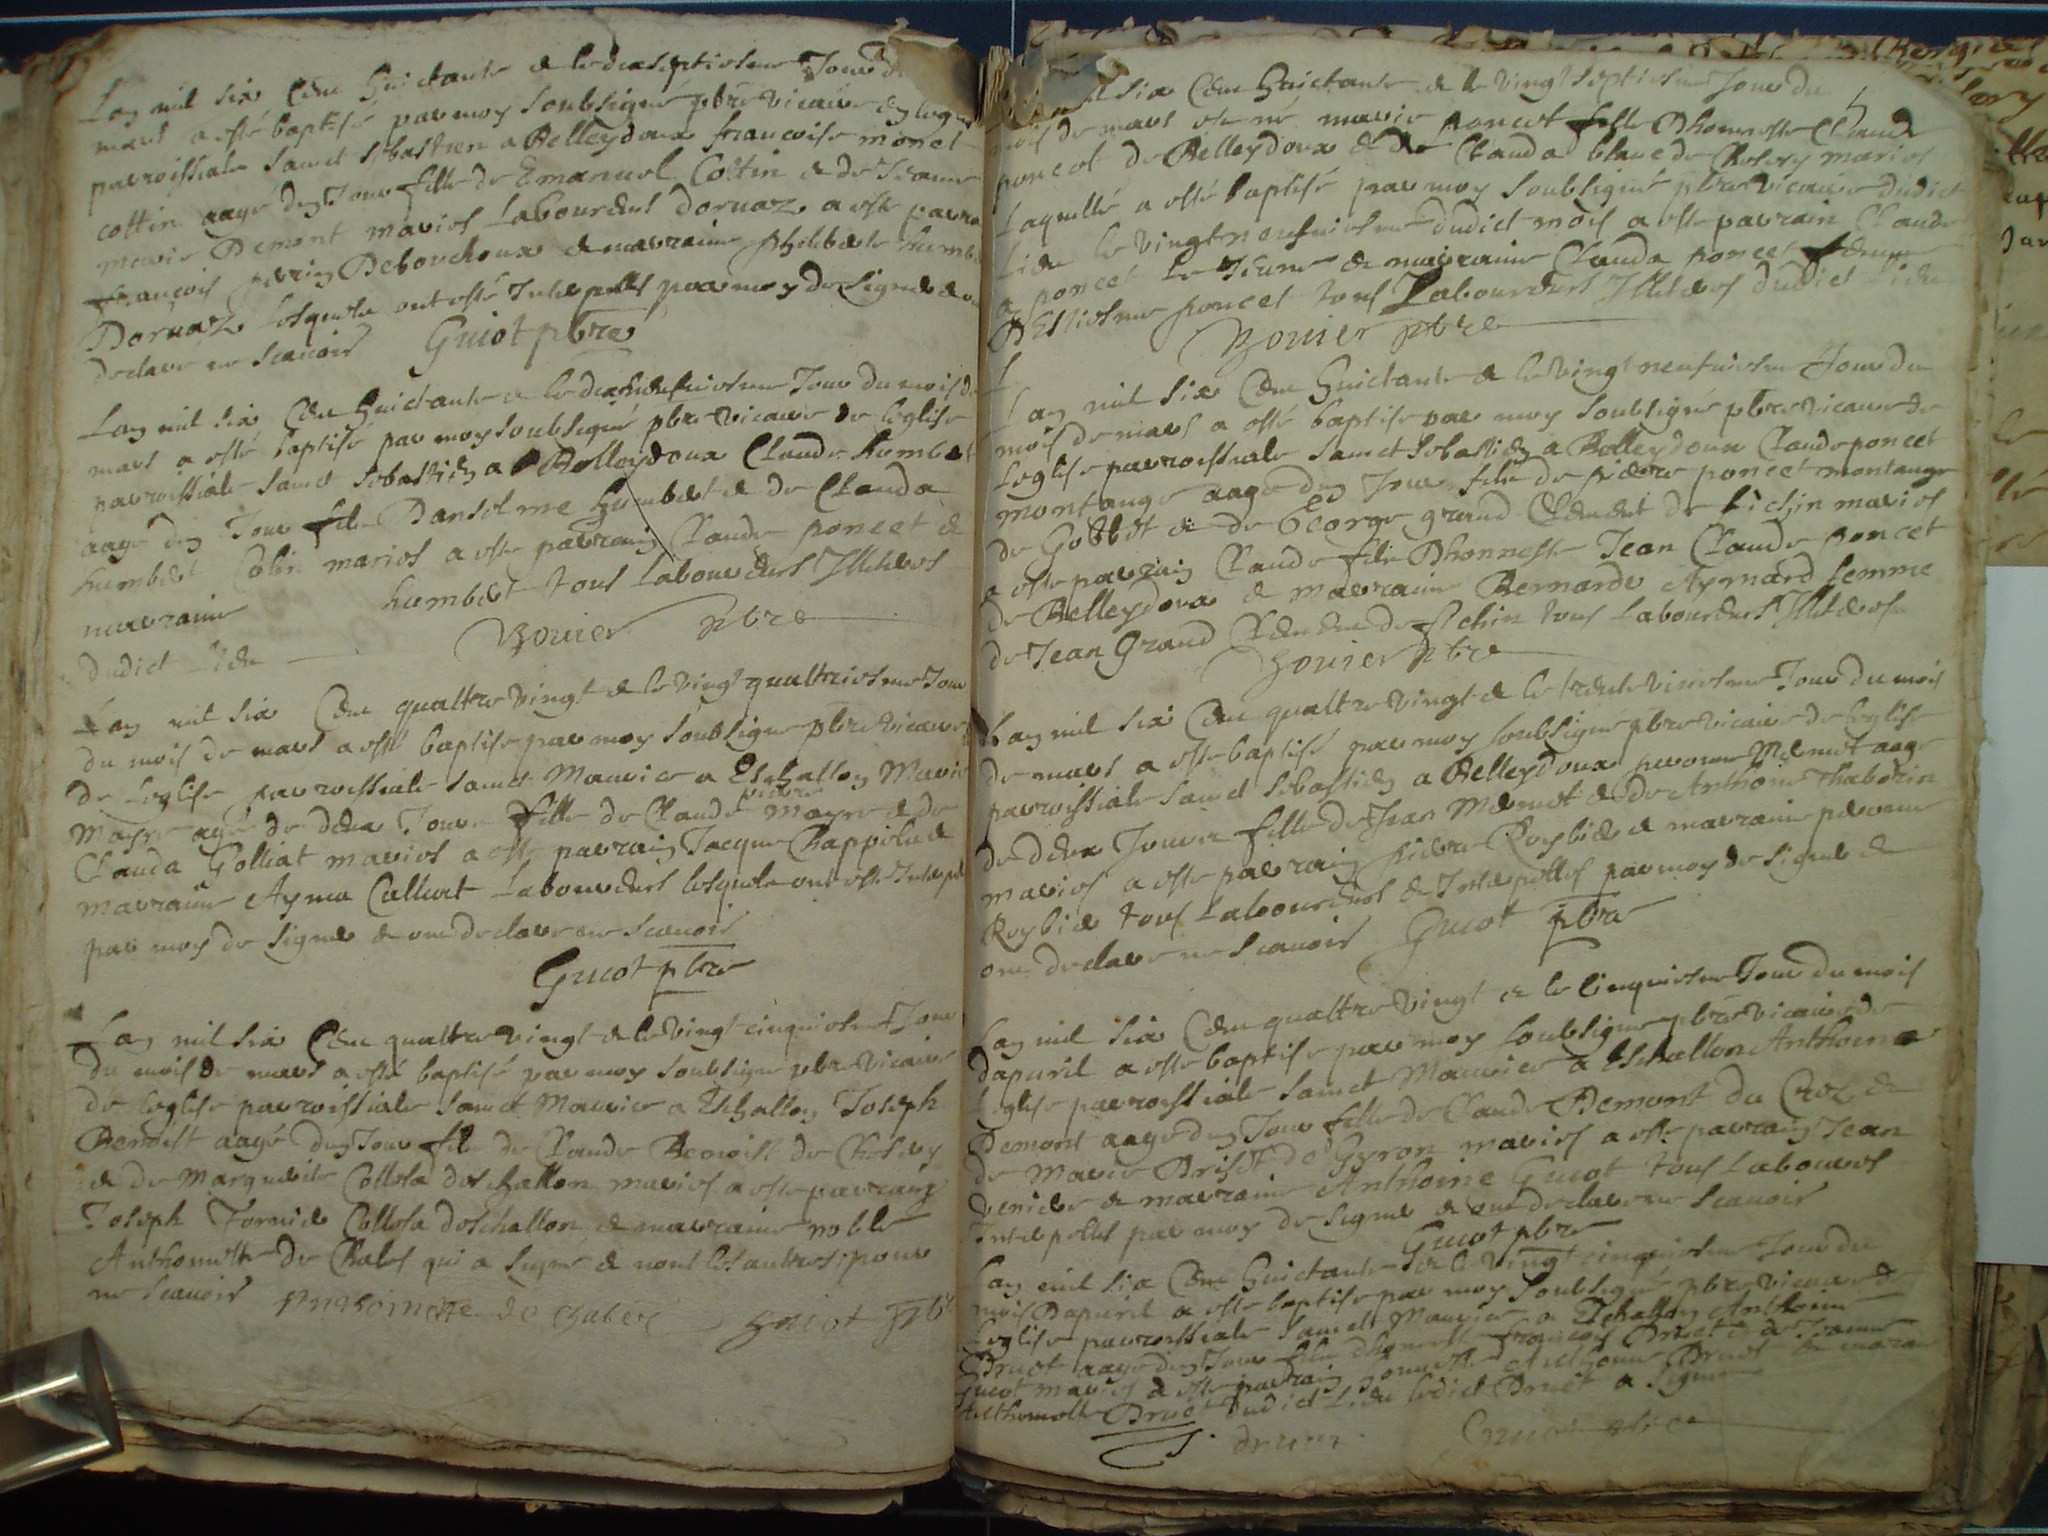 Lan mil six Cens huictante & le dixseptiesme Jour du
mars a esté baptisé par moy soubsigné pbre vicaire en leglise
parroissiale sainct sebastien a Belleydoux francoise monet
cottin aagé dun Jour fille de Emanuel Cottin & de Jeanne
marie Demont mariés Laboureurs dornaz a esté parrain
francois perrin Debouchoux & marraine philiberte humbert
Dornaz lesquels ont esté Interpellés par moy de signer & ont
declaré ne scauoir Guiot pbre
Lan mil six Cens huictante & le dixneufuiesme Jour du mois de
mars a esté baptisé par moy soubsigné pbre vicaire de leglise
parroissiale sainct sebastien a Belleydoux Claude humbert
aagé dun Jour fils Danselme humbert & de Clauda
humbert Colin mariés a esté parrain Claude poncet &
marraine humbert tous Laboureurs Illiterés
dudict lieu Bouier pbre
Lan mil six Cens quattre vingt & le vingt quattriesme Jour
du mois de mars a esté baptisé par moy soubsigné pbre vicaire
de leglise parroissiale sainct Maurice a Eschallon Marie
Mayre agé de deux Jours fille de Claude pierre mayre & de
Clauda Golliat mariés a esté parrain Jacque Chappelu &
marraine Ayma Callvet Laboureurs lesquels ont esté Interpellés
par moy de signer & ont declaré ne scauoir
Guiot pbre
Lan mil six Cens quattre vingt & le vingt cinquiesme Jour
du mois de mars a esté baptisé par moy soubsigné pbre vicaire
de leglise parroissiale sainct Maurice a Eschallon Joseph
Benoist aagé dun Jour fils de Claude Benoist de Chesery
& de Marguerite Collosa deschallon mariés a esté parrain
Joseph Tornier Collosa deschallon & marraine noble
Anthoinette de Chales qui a signé & nont les autres pour
ne scauoir Anthoinette de chales Guiot pbre
mil six Cens huictante & le vingt septiesme Jour du
mois de mars est né marie poncet fille Dhonneste Claude
poncet de Belleydoux & de Clauda blanc de Chesery mariés
Laquelle a esté baptisé par moy soubsigné pbre vicaire dudict
Lieu le vingt neufuiesme dudict mois a esté parrain Claude
poncet le Jeune & marraine Clauda poncet femme
DEstiesne poncet tous Laboureurs Illiterés dudict lieu
Bouier pbre
Lan mil six Cens huictante & le vingt neufuiesme Jour du
mois de mars a esté baptisé par moy soubsigné pbre vicaire de
leglise parroissiale sainct sebastien a Belleydoux Claude poncet
montange aagé dun Jour fils de pierre poncet montange
de Gobbet & de George grand Clement de Lichin mariés
a esté parrain Claude fils Dhonneste Jean Claude poncet
de Belleydoux & marraine Bernarde Aymard femme
de Jean Grand Clement de Lichin tous Laboureurs Illiterés
Bouier pbre
Lan mil six Cens quattre vingt & le trente vniesme Jour du mois
de mars a esté baptisé par moy soubsigné pbre vicaire de leglise
parroissiale sainct sebastien a Belleydoux peronne Mermet aagé
de deux Jours fille de Jean Mermet & de Anthoine Thaborin
mariés a esté parrain pierre Roybier & marraine peronne
Roybier tous Laboureurs & Interpellés par moy de signer &
ont declaré ne scauoir Guiot pbre
Lan mil six Cens quattre vingt & le Cinquiesme Jour du mois
dapuril a esté baptisé par moy soubsigné pbre vicaire de
leglise parroissiale sainct Maurice a Eschallon Anthoine
Demont aagé dun Jour fille de Claude Demont du Croz &
de Marie Briset de Gyron mariés a esté parrain Jean
& marraine Anthoine Guiot tous Laboureurs
Interpellés par moy de signer & ont declaré ne scauoir
Guiot pbre
Lan mil six Cens huictante & le vingt cinquiesme Jour du
mois Dapuril a esté baptisé par moy soubsigné pbre vicaire de
leglise parroissiale sainct Maurice a Eschallon Anthoine
Druet aagé dun Jour fils dhoneste francois Druet & de Jeanne
Guiot mariés a esté parrain honneste Anthoine Druet & marraine
Anthoinette Druet dudict lieu ledict Druet a signé
druet Guiot pbre